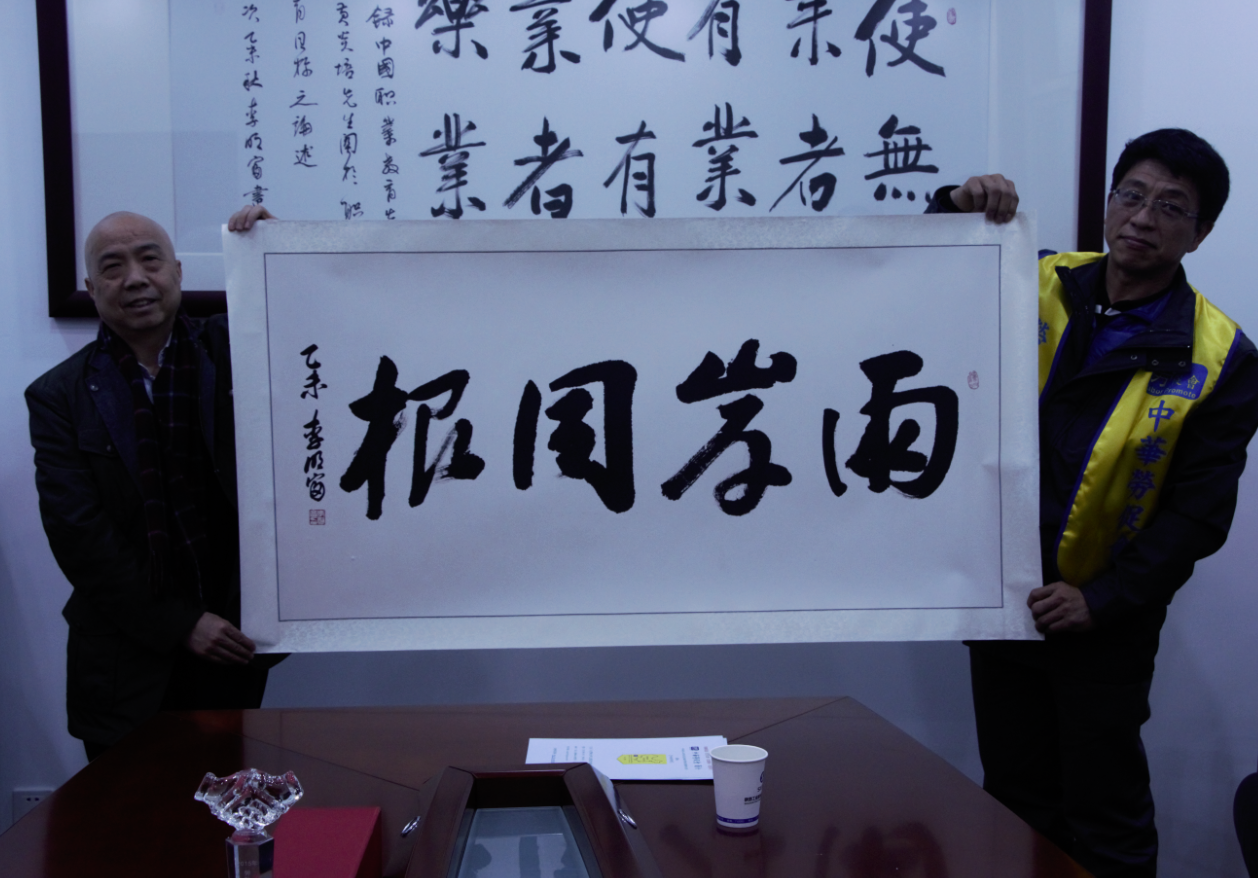 使無
業者
有業
使有
業者
樂業
錄中國职業教育
黄炎培先生関於职
育目标之論述
次乙未秋李明富書
兩岸同根
乙未 李明富
中華勞促